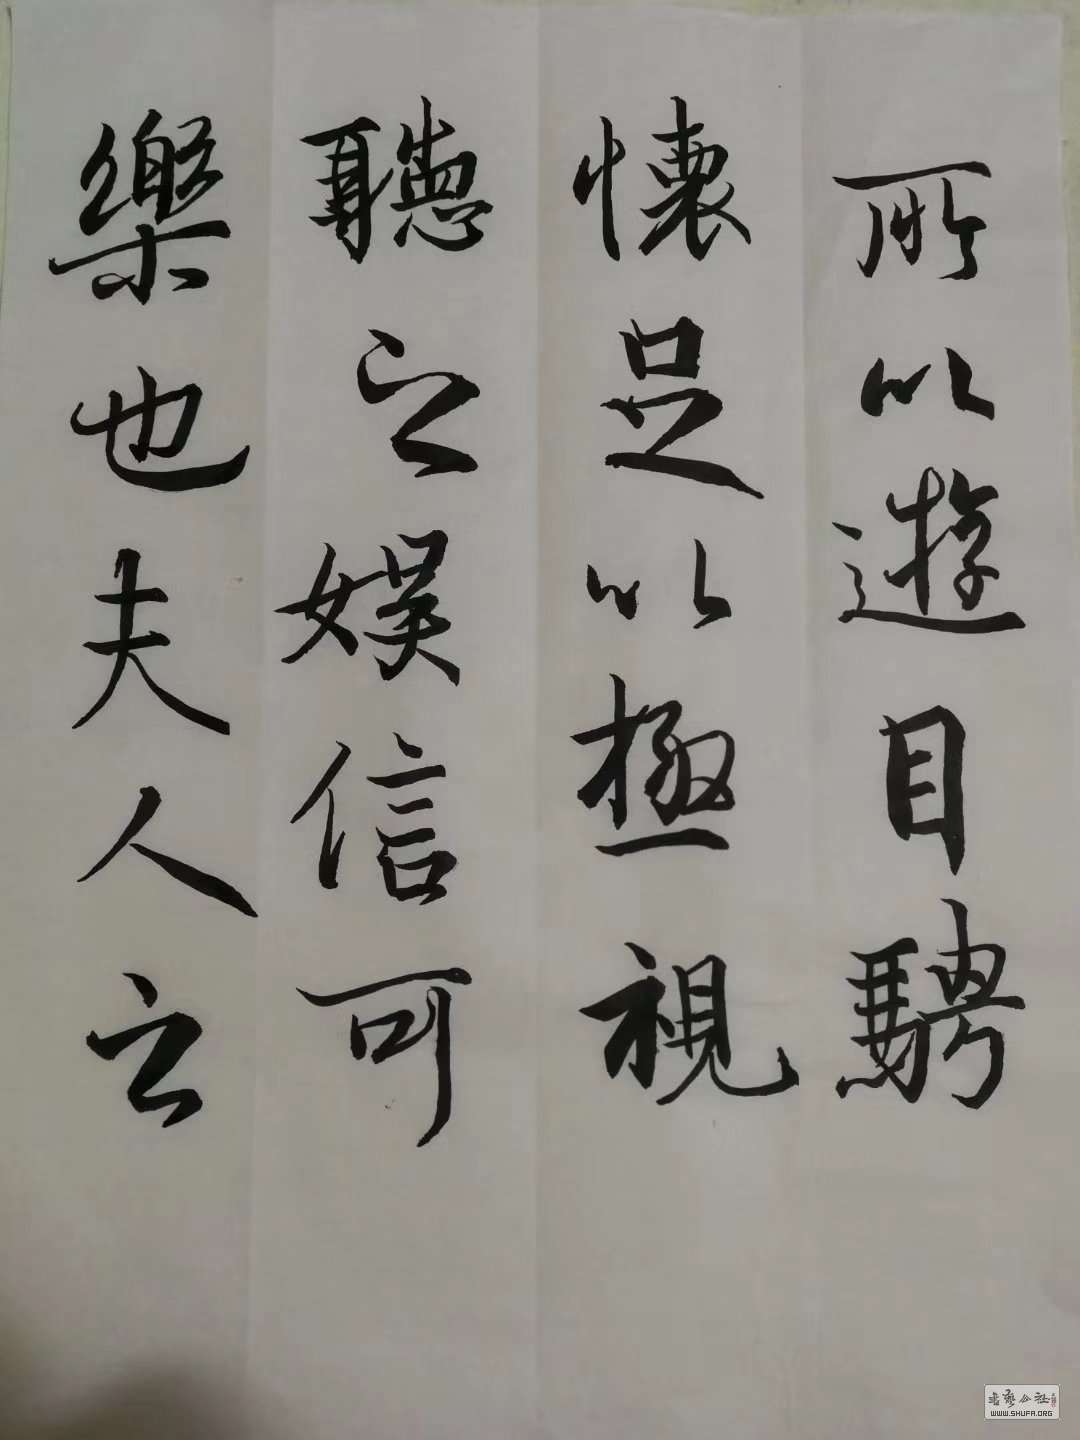 所以遊目騁
懷足以極視
聽之娛信可
樂也夫人之
書藝公社
WWW.SHUFA.ORG